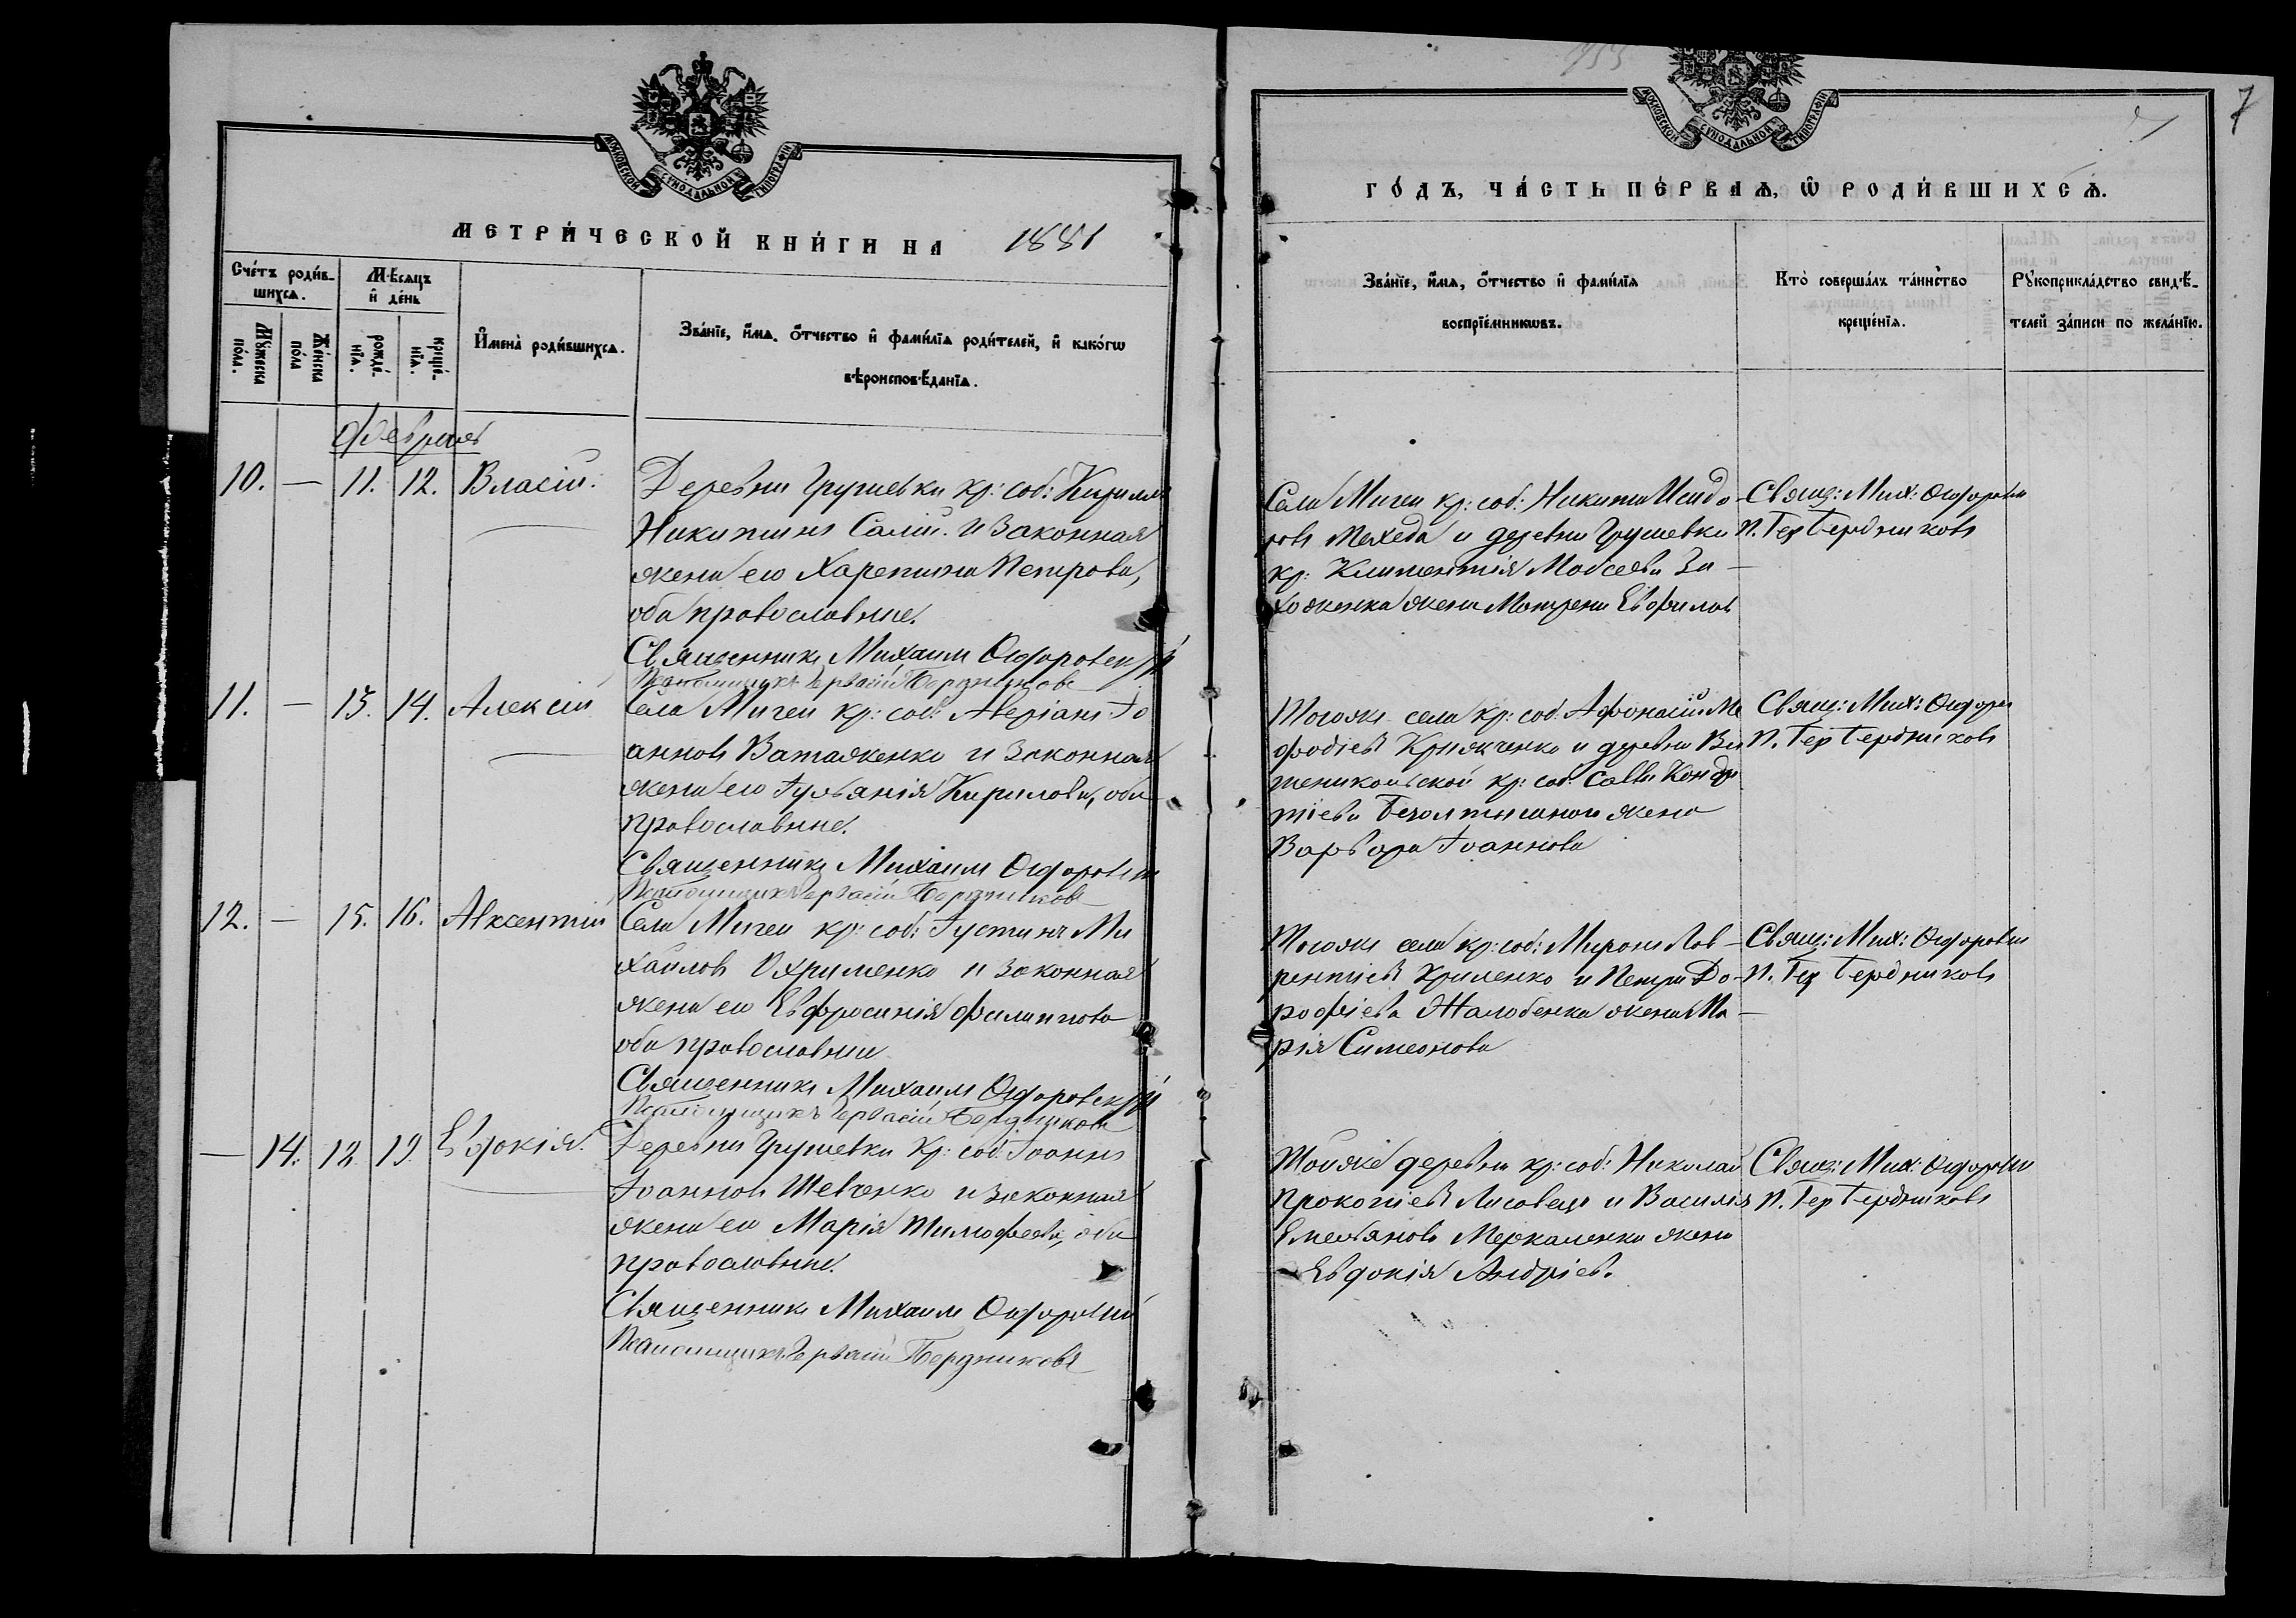 МОСКОВСКОЙ СѴНОДАЛЬНОЙ ТИПОГРАФІИ
МЕТРИ́ЧЕСКОЙ КНИ́ГИ НА 1881
Сче́тъ роди́в-
шихсѧ.
Мѣ́сѧцъ
и҆ де́нь
Мꙋ́жеска
по́ла.
Же́нска
по́ла
рожде́-
нїѧ.
креще́-
нїѧ.
И҆мена̀ роди́вшихсѧ.
Зва́нїе, и҆́мѧ, ѻ҆́тчество и҆ фами́лїѧ роди́телей, и҆ како́гѡ
вѣроисповѣ́данїѧ.
Февраль
10. — 11. 12. Власій.
Деревни Грушевки кр: соб: Кирилъ
Никитинъ Салій. и законная
жена его Харитина Петрова,
оба православные.
Священникъ Михаилъ
Псаломщикъ Гервасій Бердниковъ
11. — 13. 14. Алексій
Села Мигеи кр: соб: Аверіанъ Іо
анновъ Ватаженко и законная
жена его Іульянія Кирилова, оба
православные.
Священникъ Михаилъ
Псаломщикъ Гервасій Бердниковъ
12. — 15. 16. Авксентій
Села Мигеи кр: соб: Іустинъ Ми
хайловъ Охрименко и законная
жена его Евфросинія Филипова
оба православные
Священникъ Михаилъ
Псаломщикъ Гервасій Бердниковъ
— 14. 18. 19. Евдокія.
Деревни Грушевки кр: соб: Іоаннъ
Іоанновъ Шевченко и законная
жена его Марія Тимофеева, оба
православные.
Священникъ Михаилъ
Псаломщикъ Гервасій Бердниковъ
7
МОСКОВСКОЙ СѴНОДАЛЬНОЙ ТИПОГРАФІИ
ГО́ДЪ, ЧА́СТЬ ПЕ́РВАѦ, Ѡ҆ РОДИ́ВШИХСѦ.
Зва́нїе, и҆́мѧ, ѻ҆́тчество и҆ фами́лїѧ
воспрїе́мникѡвъ.
Кто̀ соверша́лъ та́инство
креще́нїѧ.
Рꙋкоприкла́дство свидѣ́-
телей за́писи по жела́нїю.
Села Мигеи кр: соб: Никита Исидо-
ровъ Мехеда и деревни Грушевки
кр: Климентія Моѵсеева За-
хоженка жена Матрена
Свящ: Мих:
П. Гер Бердниковъ
Тогоже села кр: соб: Афонасій Ме
фодіевъ Крыжченко и деревни
кр: соб: Саввы
жена
Варвара Іоаннова
Свящ: Мих:
П. Гер Бердниковъ
Тогоже села кр: соб: Миронъ Лав-
рентіевъ Криленко и Петра До-
рофіева Жалобенка жена Ма-
рія Симеонова
Свящ: Мих:
П. Гер Бердниковъ
Тойже деревни кр: соб: Николай
Прокопіевъ Лисовецъ и Василія
Емельянова Меркаленка жена
Евдокія Андріев.
Свящ: Мих:
П. Гер Бердниковъ